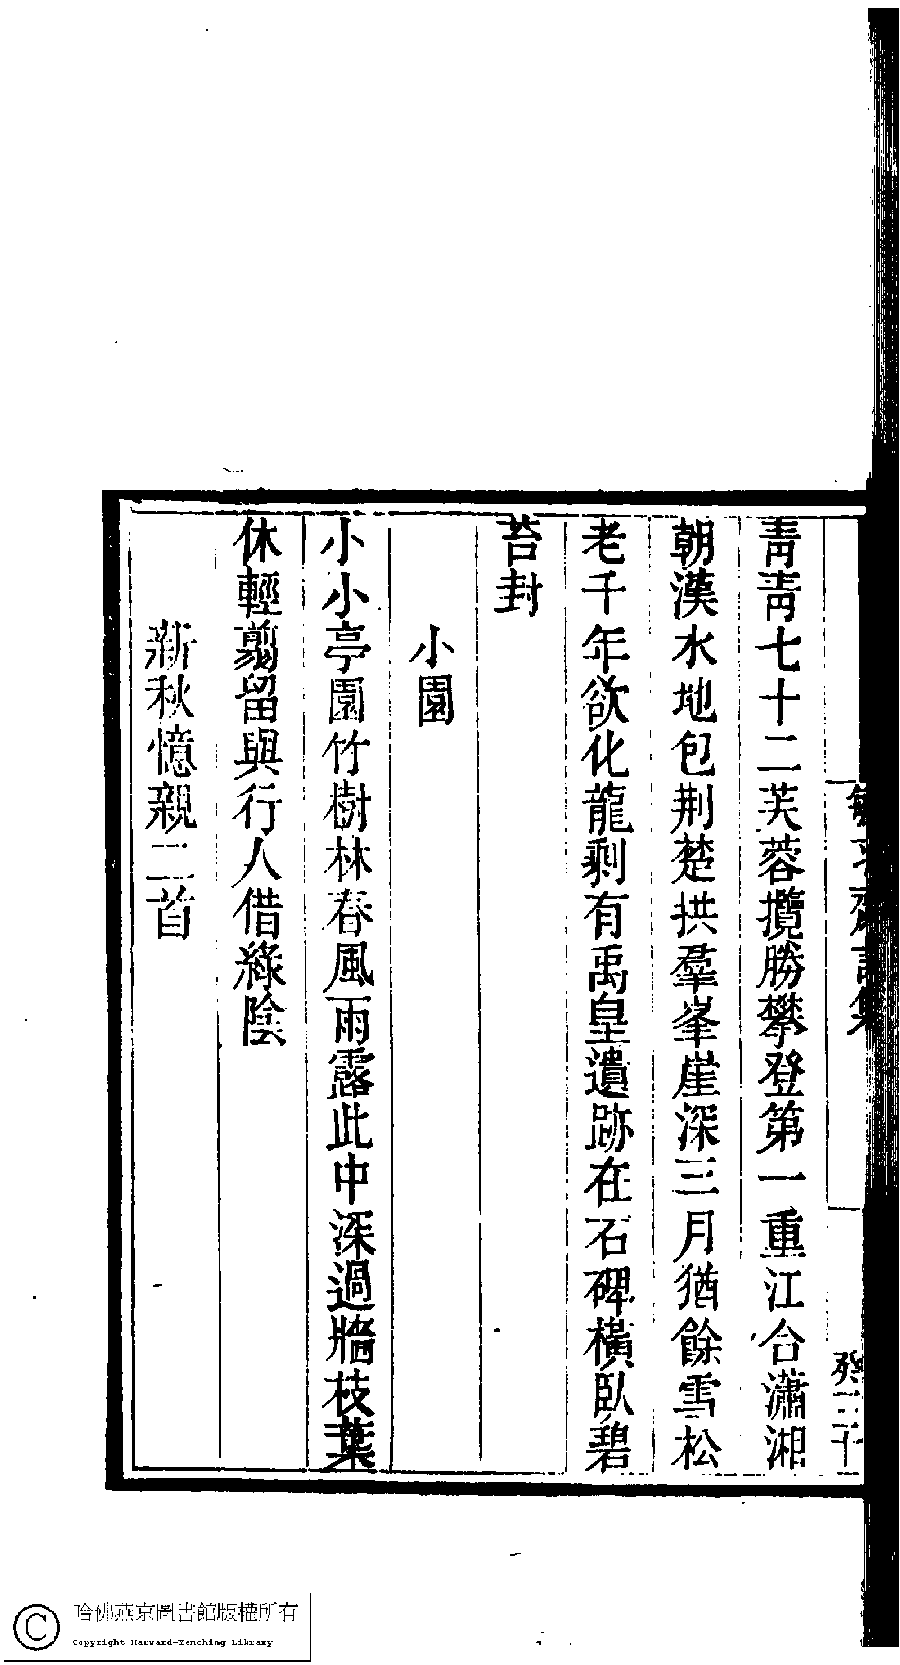 青青七十二芙蓉攬勝攀登第一重江合瀟湘
朝漢水地包荆楚拱羣峯崖深三月猶餘雪松
老千年欲化龍剩有禹皇遺跡在石碑橫臥碧
苔封
小園
小小亭園竹樹林春風雨露此中深過牆枝葉
休輕翦留與行人借綠陰
新秋憶親二首
癸三十
哈佛燕京圖書館版權所有
Copyright Harvard-Yenching Library